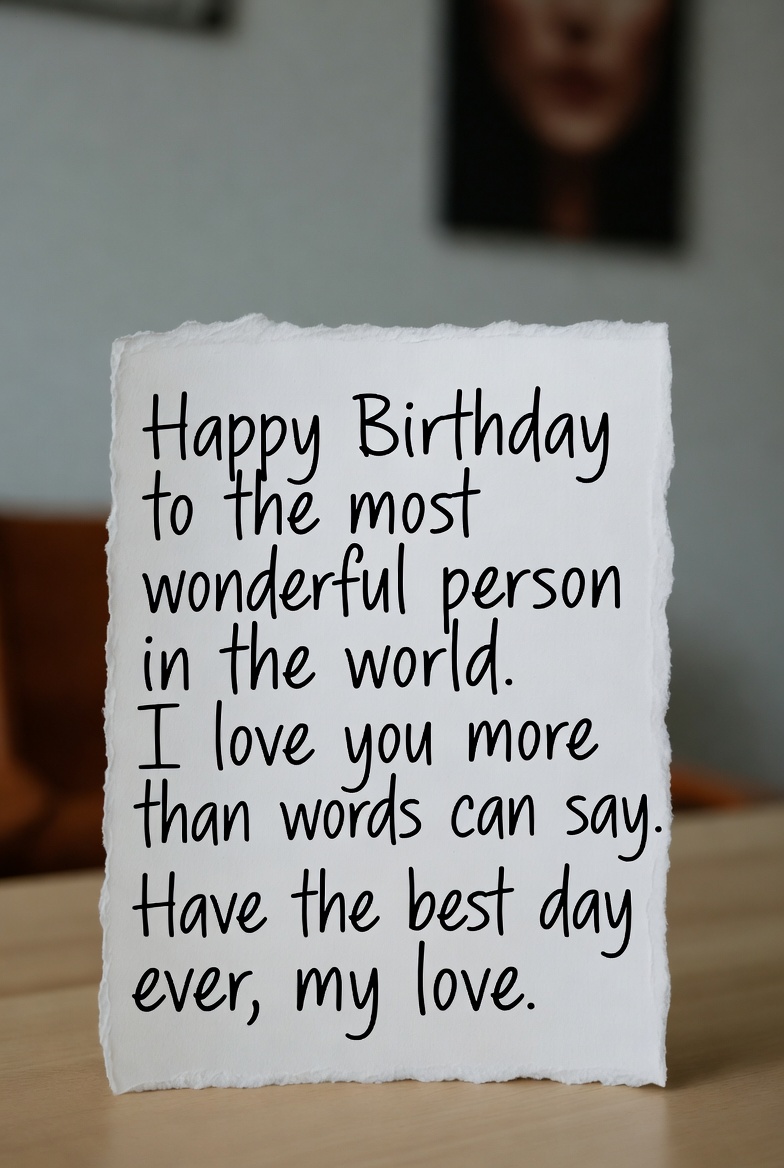 Happy Birthday
to the most
wonderful person
in the world.
I love you more
than words can say.
Have the best day
ever, my love.